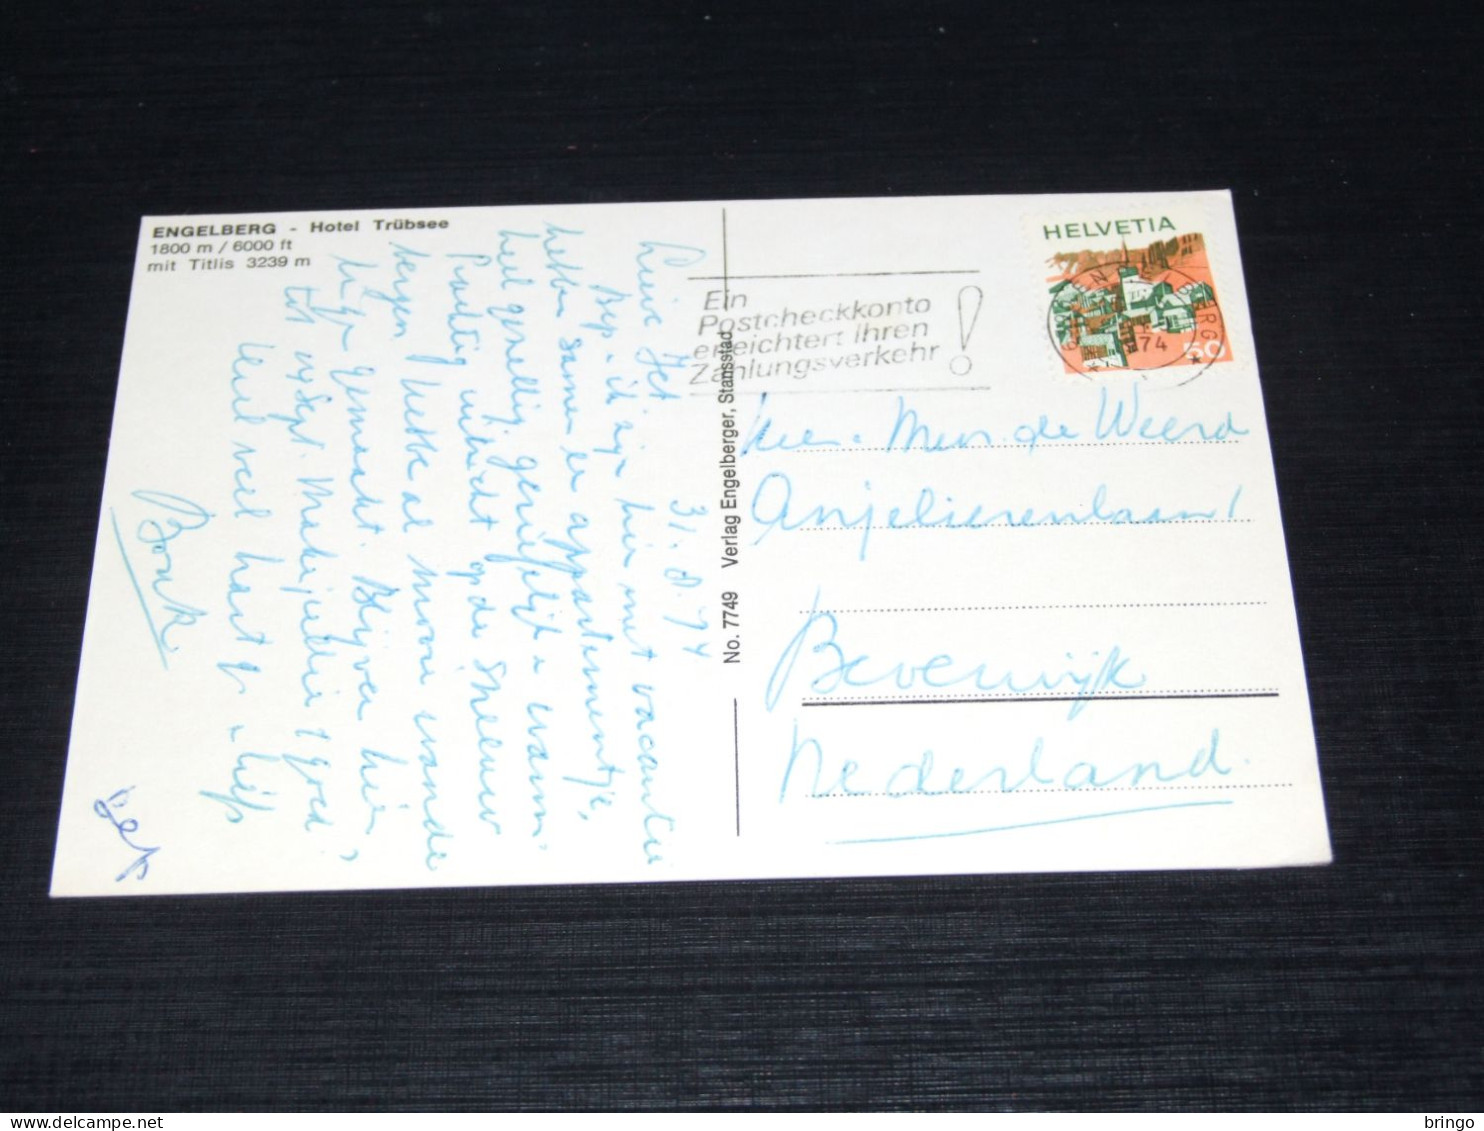 ENGELBERG - Hotel Trübsee
1800 m / 6000 ft
mit Titlis 3239 m
31.8.74
Lieve Jet
Bep en ik zijn hier met vacantie
hebben samen een appartementje,
heel gezellig, geriefelijk en warm.
Prachtig uitzicht op de sneeuw
bergen. Hebben al mooie wande
lingen gemaakt. Blijven hier
tot sept.
Heel veel hartel. liefs
Bet
No. 7749 Verlag Engelberger, Stansstad
Ein
Postcheckkonto
erleichtert Ihren
Zahlungsverkehr!
HELVETIA
50
ENGELBERG
74
Mevr. de Weerd
Anjelierenlaan 1
Beverwijk
Nederland.
bringo